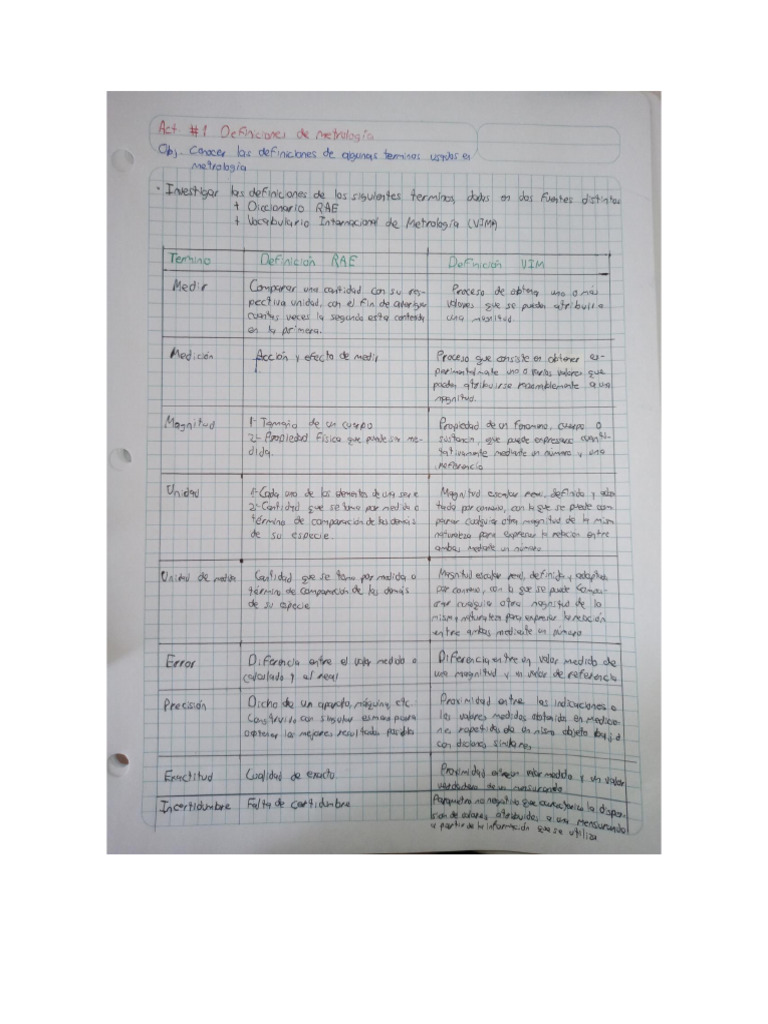 Act. #1 Definiciones de Metrología
Obj. Conocer las definiciones de algunas terminos usados en
metrología
• Investigar las definiciones de los siguientes terminos, dadas en dos fuentes distintas
+ Diccionario RAE
+ Vocabulario Internacional de Metrología (VIM)
Termino
Definición RAE
Definición VIM
Medir
Comparar una cantidad con su res-
pectiva unidad, con el fin de
cuantas veces la segunda esta contenida
en la primera.
Proceso de obtener uno o más
valores que se pueden atribuir a
una magnitud.
Medición
Acción y efecto de medir
Proceso que consiste en obtener ex-
perimentalmente uno o varios valores que
pueden atribuirse razonablemente a una
magnitud.
Magnitud
1- Tamaño de un cuerpo
2- Propiedad Física que puede ser me-
dida.
Propiedad de un fenomeno, cuerpo o
sustancia, que puede expresarse cuanti-
tativamente mediante un número y una
referencia
Unidad
1- Cada uno de los elementos de una serie
2- Cantidad que se toma por medida o
término de comparación de las demás
de su especie.
Magnitud escalar real, definida y adop
tada por convenio, con la que se puede com
parar cualquier otra magnitud de la misma
naturaleza para expresar la relación entre
ambas mediante un número
Unidad de medida
Cantidad que se toma por medida o
término de comparación de las demás
de su especie
Magnitud escalar real, definida y adoptada
por convenio, con la que se puede compa-
rar cualquier otra magnitud de la
misma naturaleza para expresar la relación
entre ambas mediante un número
Error
Diferencia entre el valor medido o
calculado y el real
Diferencia entre un valor medido de
una magnitud y un valor de referencia
Precisión
Dicho de un aparato, máquina, etc
Construido con singular esmero para
obtener los mejores resultados posible
Proximidad entre las indicaciones o
los valores medidos obtenidos en medicio-
nes repetidas de un mismo objeto bajo
condiciones similares
Exactitud
Cualidad de exacto.
Proximidad entre un valor medido y un valor
verdadero de un mensurando
Incertidumbre
Falta de certidumbre
Parametro no negativo que caracteriza la disper
sión de valores atribuidos a un mensurando
a partir de la información que se utiliza